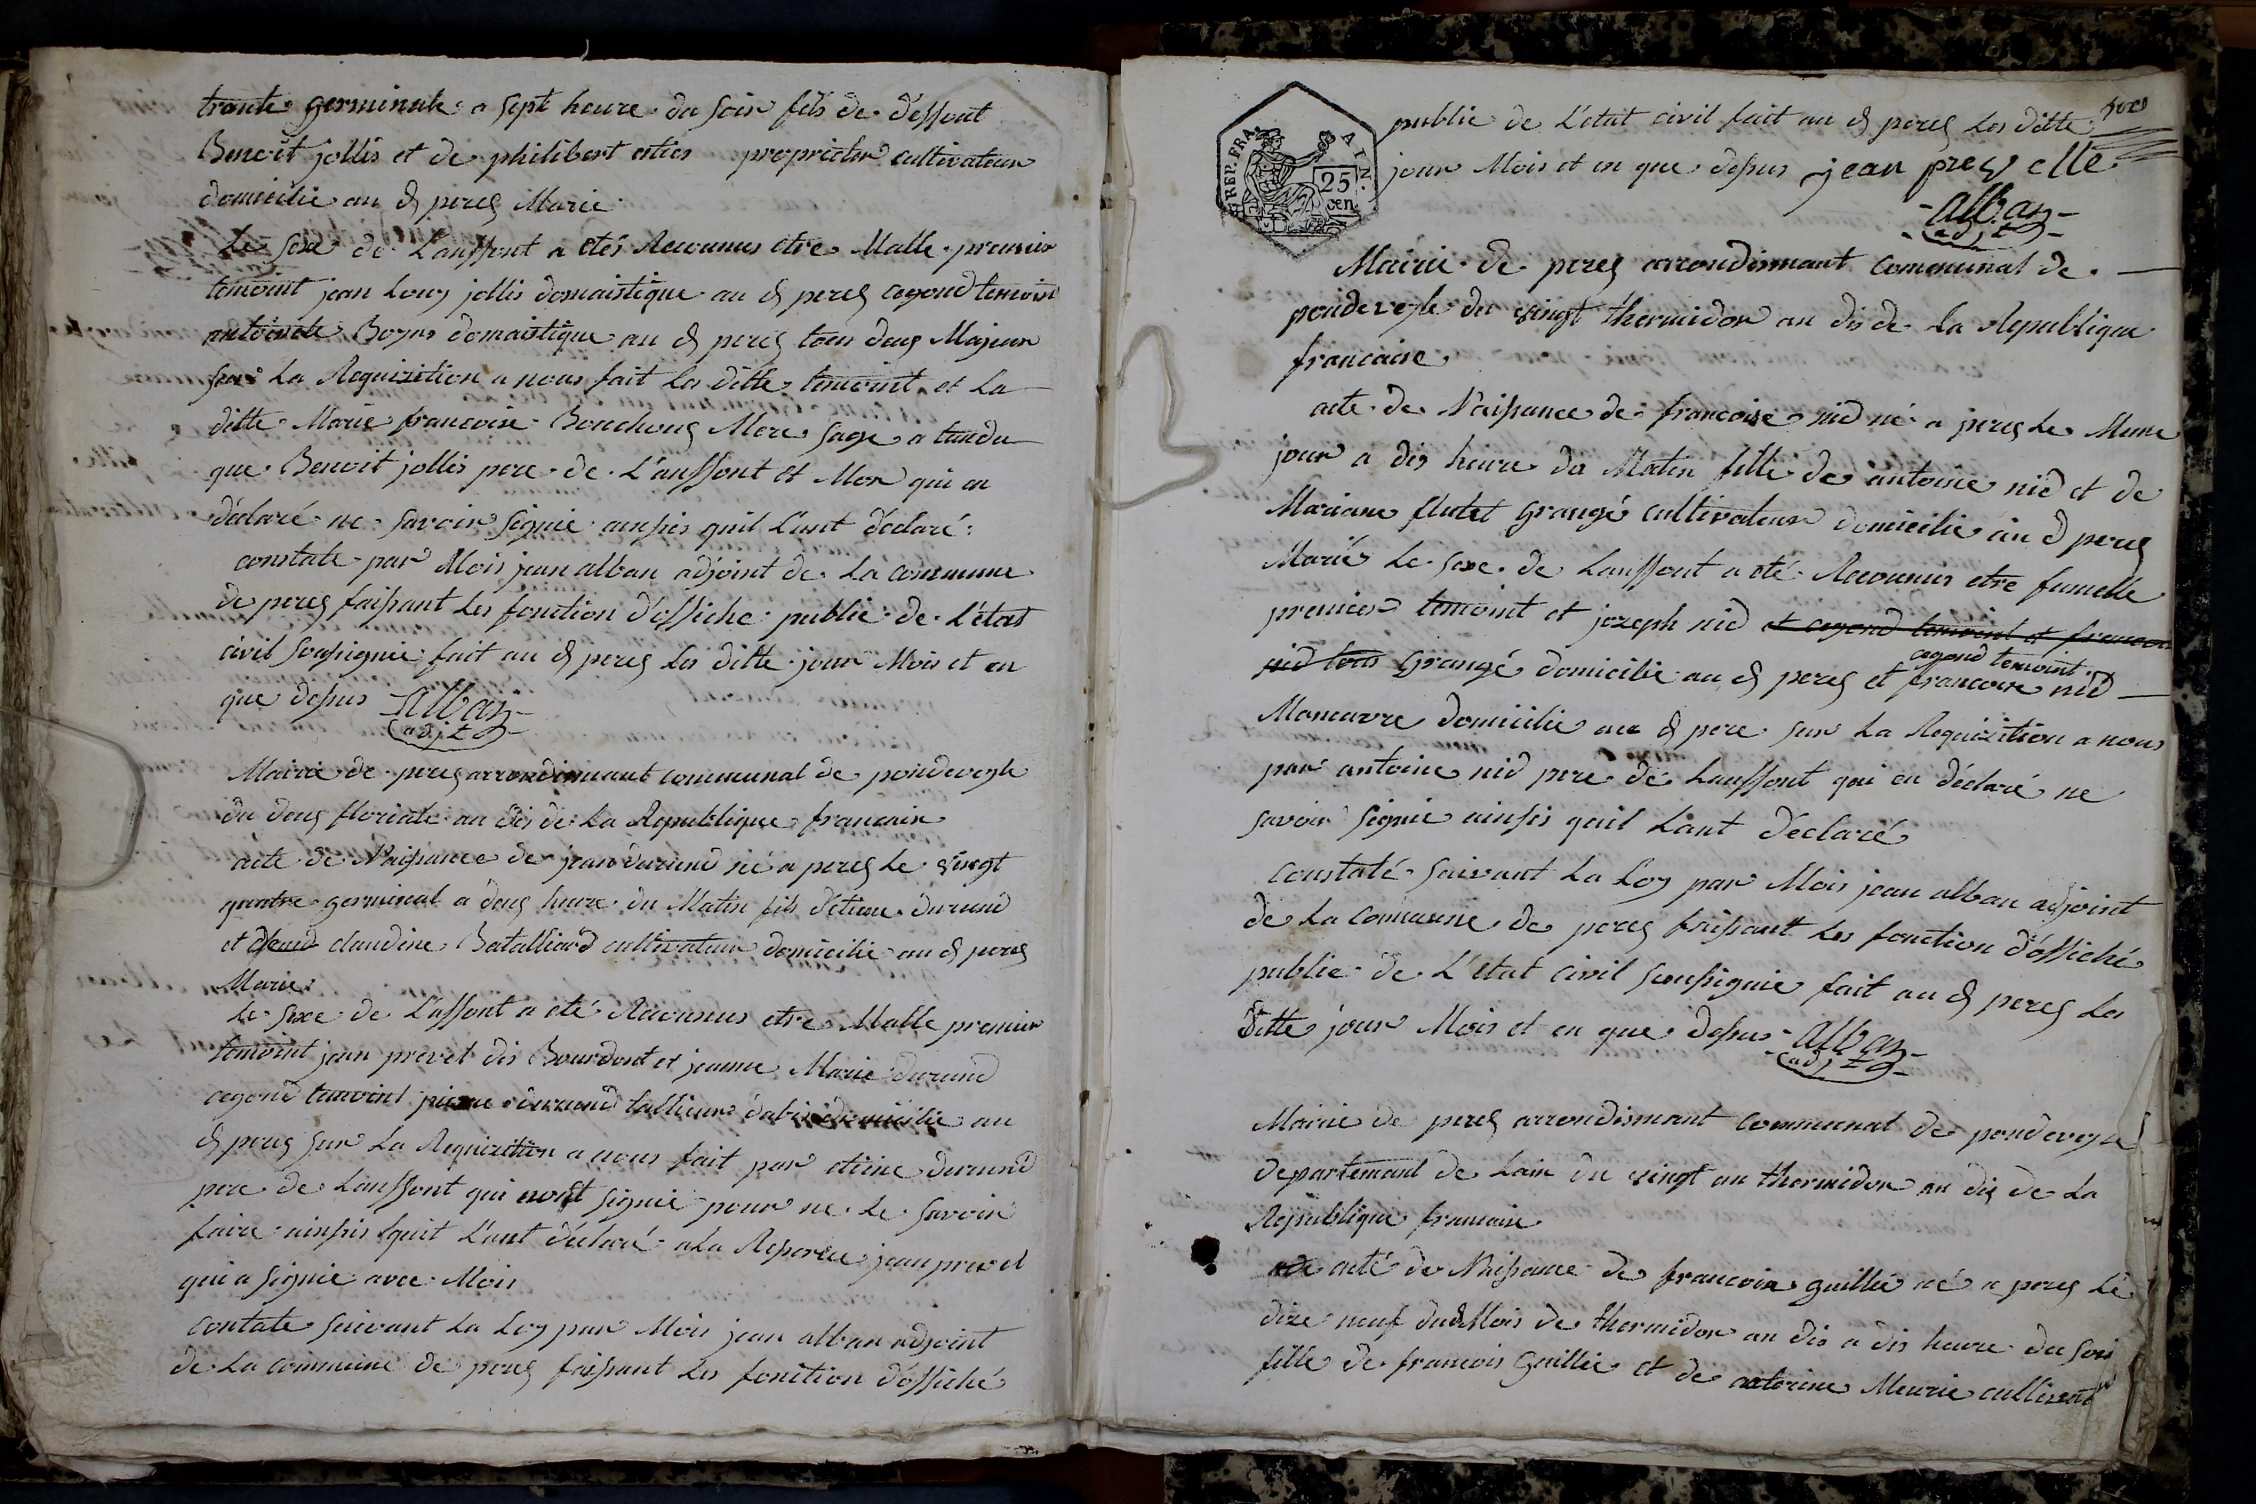 trante germinale a sept heure du soir fils de d'effont
Benoit jollis et de philibert proprieter cultivateur
domicilie au d peres Marie
Le sexe de L'auffont a etés Reconnus etre Malle premier
temoint jean Louy jollis domaistique au d peres cegond temoint
antoinete Boyer domaistique au d peres tous deus Majeur
sur La Requizition a nous fait La ditte temoint et La
ditte Marie francoise Mere sage a tandu
que Benoit jollis pere de L'auffont et Mor qui on
déclaré ne savoir signie ainsis quil L'ant déclaré
constate par Mois jean alban adjoint de La commune
de peres faissant Les fonction d'offiche public de L'état
civil soussignie fait au d peres Les ditte jour Mois et an
que dessus alban
adjt
Mairie de peres arrondismant communal de pondevesle
du deus floriale an dis de La Republique francaise
acte de Naissance de jean durand né a peres Le vingt
quatre germinal a deus heure du Matin fils d'etiene durand
et claudine Batalliard cultivateur domicilie au d peres
Marie
Le sexe de L'affont a eté Reconnus etre Malle premier
temoint jean prevel dis Bourdont et jeanne Marie durand
cegond temoint pierre durand tallieur d'abis domicilie au
d peres sur La Requizition a nous fait par etiene durand
pere de Lauffont qui nont signie pour ne Le savoir
faire ainsis quil L'ant déclaré a La Reserve jean prevel
qui a signie avec Mois
contate suivant La Loy par Mois jean alban adjoint
de La commune de peres faissant Les fonction d'offiché
public de L'etat civil fait au d peres Les ditte
jour Mois et en que dessus jean prevelle
alban
adjt
REP. FRA. AIN.
25
cen.
Mairie de peres arrondismant communal de
pondevesle du vingt thermidor an dis de La Republique
francaise
acte de Naissance de francoise nid né a peres Le Meme
jour a dis heure du Matin fille de antoine nid et de
Mariane flutet Grangé cultivateur domicilie au d peres
Marié Le sexe de Lauffont a eté Reconnus etre fumelle
premier temoint et jozeph nid et cegond temoint et francois
cegond temoint
nid tous Grangé domicilie au d peres et francois nid
Maneuvre domicilie au d pere sur La Requizition a nous
par antoine nid pere de Lauffont qui on déclaré ne
savoir signie ainsis quil Lant déclaré
constaté suivant La Loy par Mois jean alban adjoint
de La commune de peres faissant Les fonction d'offiché
public de L'etat civil soussignie fait au d peres Les
ditte jour Mois et en que dessus alban
adjt
Mairie de peres arrondismant communal de pondevesle
departemant de Lain du vingt un thermidor an dis de La
Republique francaise
acté de Naissance de francoise guillie né a peres Le
dixe neuf dud Mois de thermidor an dis a dis heure du soir
fille de francois Guillie et de catorine Meurie cultivateur